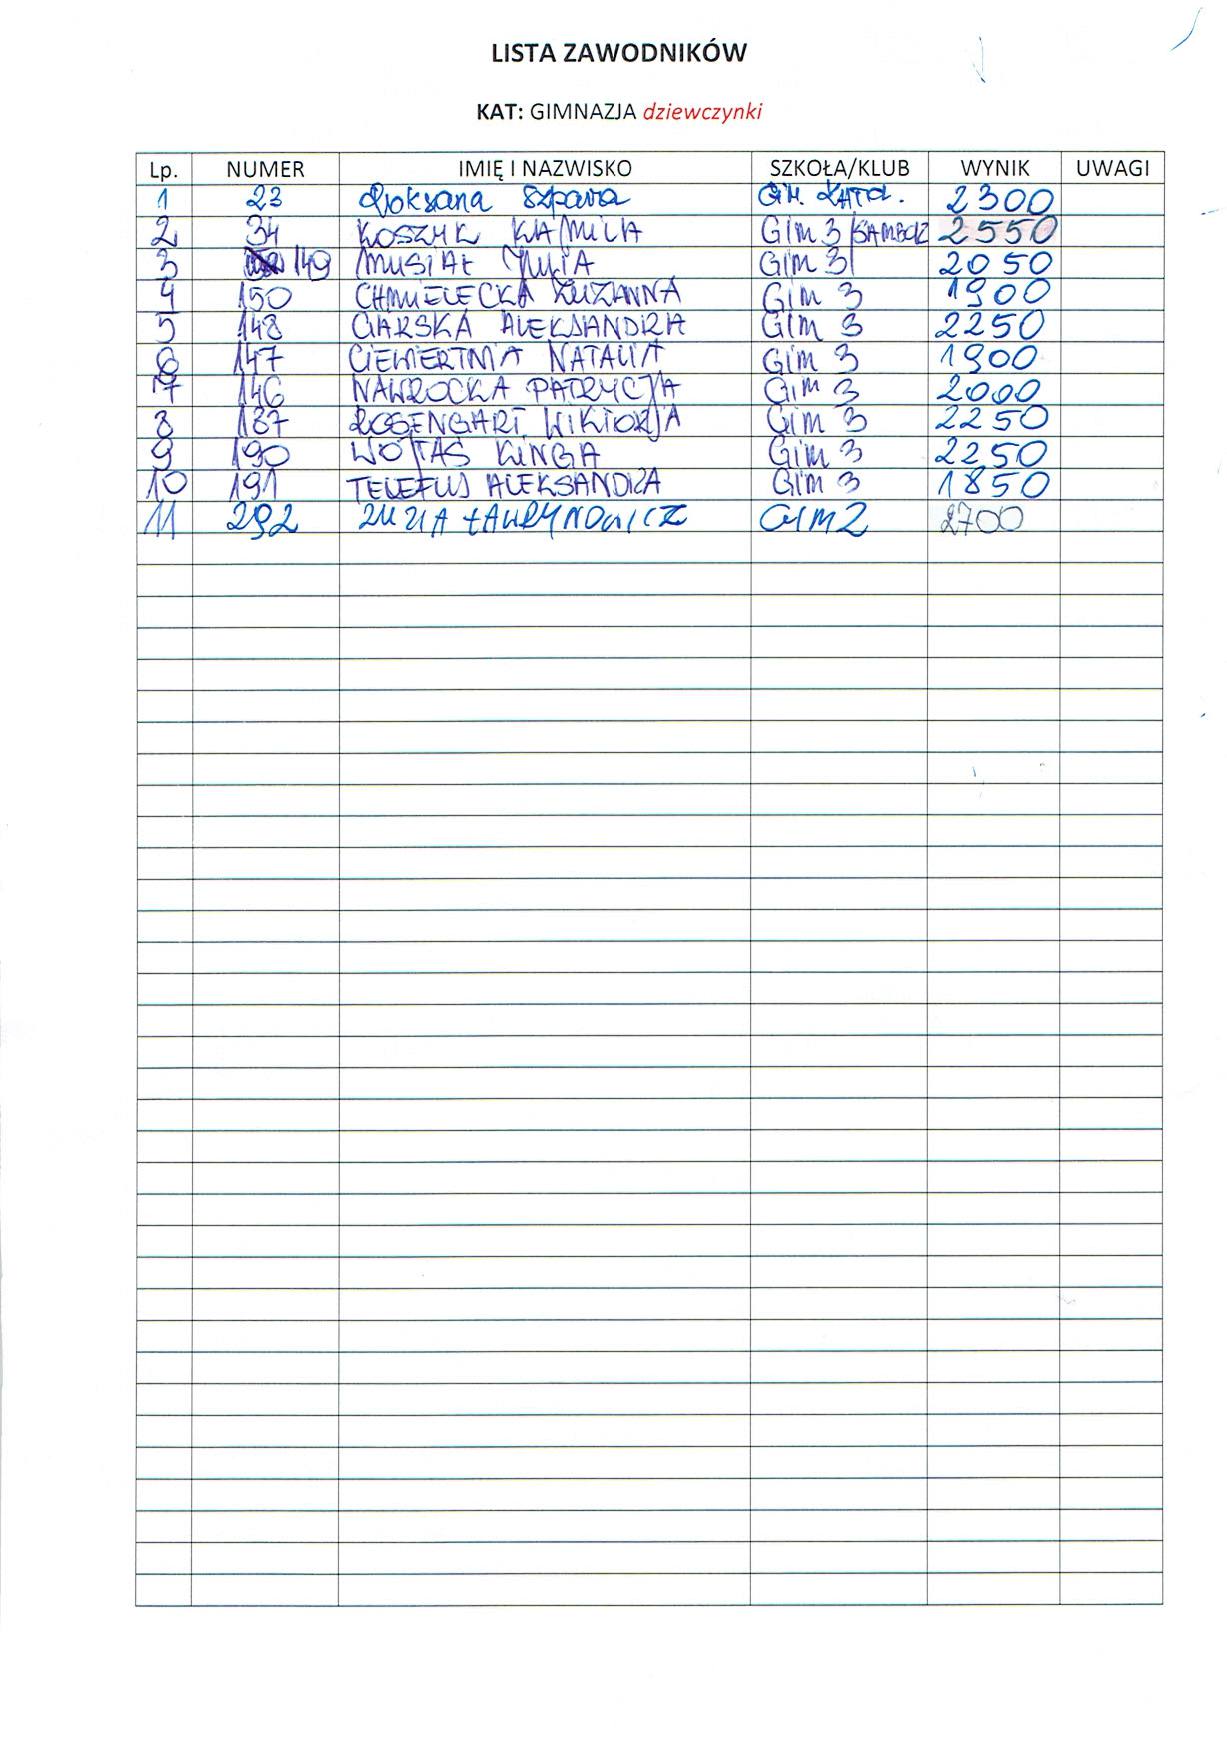 LISTA ZAWODNIKÓW
KAT: GIMNAZJA dziewczynki
Lp. NUMER IMIĘ I NAZWISKO SZKOŁA/KLUB WYNIK UWAGI
1 23 Roksana Szpara Gim. Kato. 2300
2 34 KOSZYK KAMILA Gim 3/SAMBOR 2550
3 149 MUSIAŁ JULIA Gim 3 2050
4 150 CHMIELECKA ZUZANNA Gim 3 1900
5 148 CIARSKA ALEKSANDRA Gim 3 2250
6 147 CIEWIERTNIA NATALIA Gim 3 1900
7 146 NAWROCKA PATRYCJA Gim 3 2000
8 187 ROSENGART WIKTORJA Gim 3 2250
9 190 WOJTAS KINGA Gim 3 2250
10 191 TELEFUS ALEKSANDRA Gim 3 1850
11 292 ZUZIA ŁAWRYNOWICZ GIM 2 2700